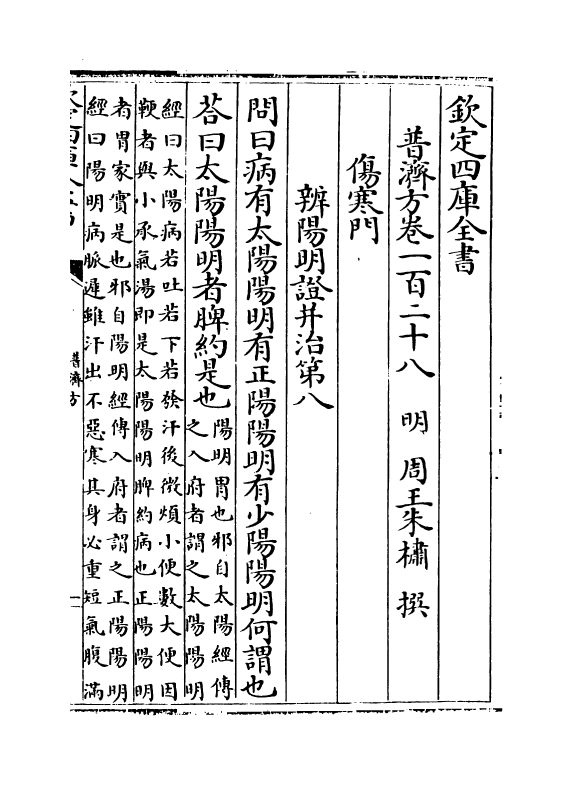 欽定四庫全書
普濟方卷一百二十八　明　周王朱橚　撰
傷寒門
辨陽明證并治第八
問曰病有太陽陽明有正陽陽明有少陽陽明何謂也
荅曰太陽陽明者脾約是也
陽明胃也邪自太陽經傳
之入府者謂之太陽陽明
經曰太陽病若吐若下若發汗後微煩小便數大便因
鞕者與小承氣湯即是太陽陽明脾約病也正陽陽明
者胃家實是也邪自陽明經傳入府者謂之正陽陽明
經曰陽明病脈遲雖汗出不惡寒其身必重短氣腹滿
普濟方
一